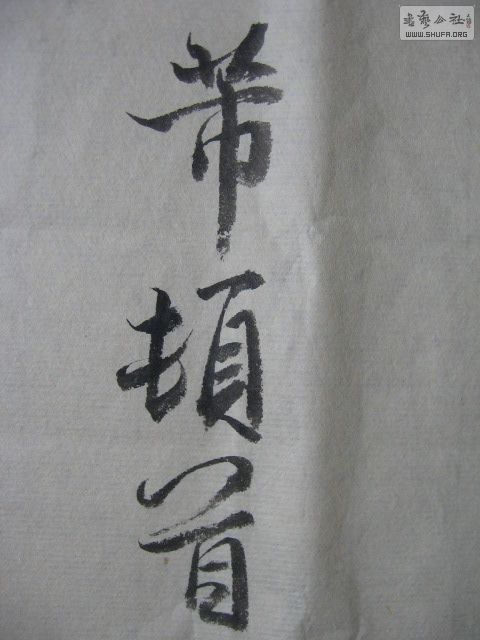 芾頓首
書藝公社
WWW.SHUFA.ORG